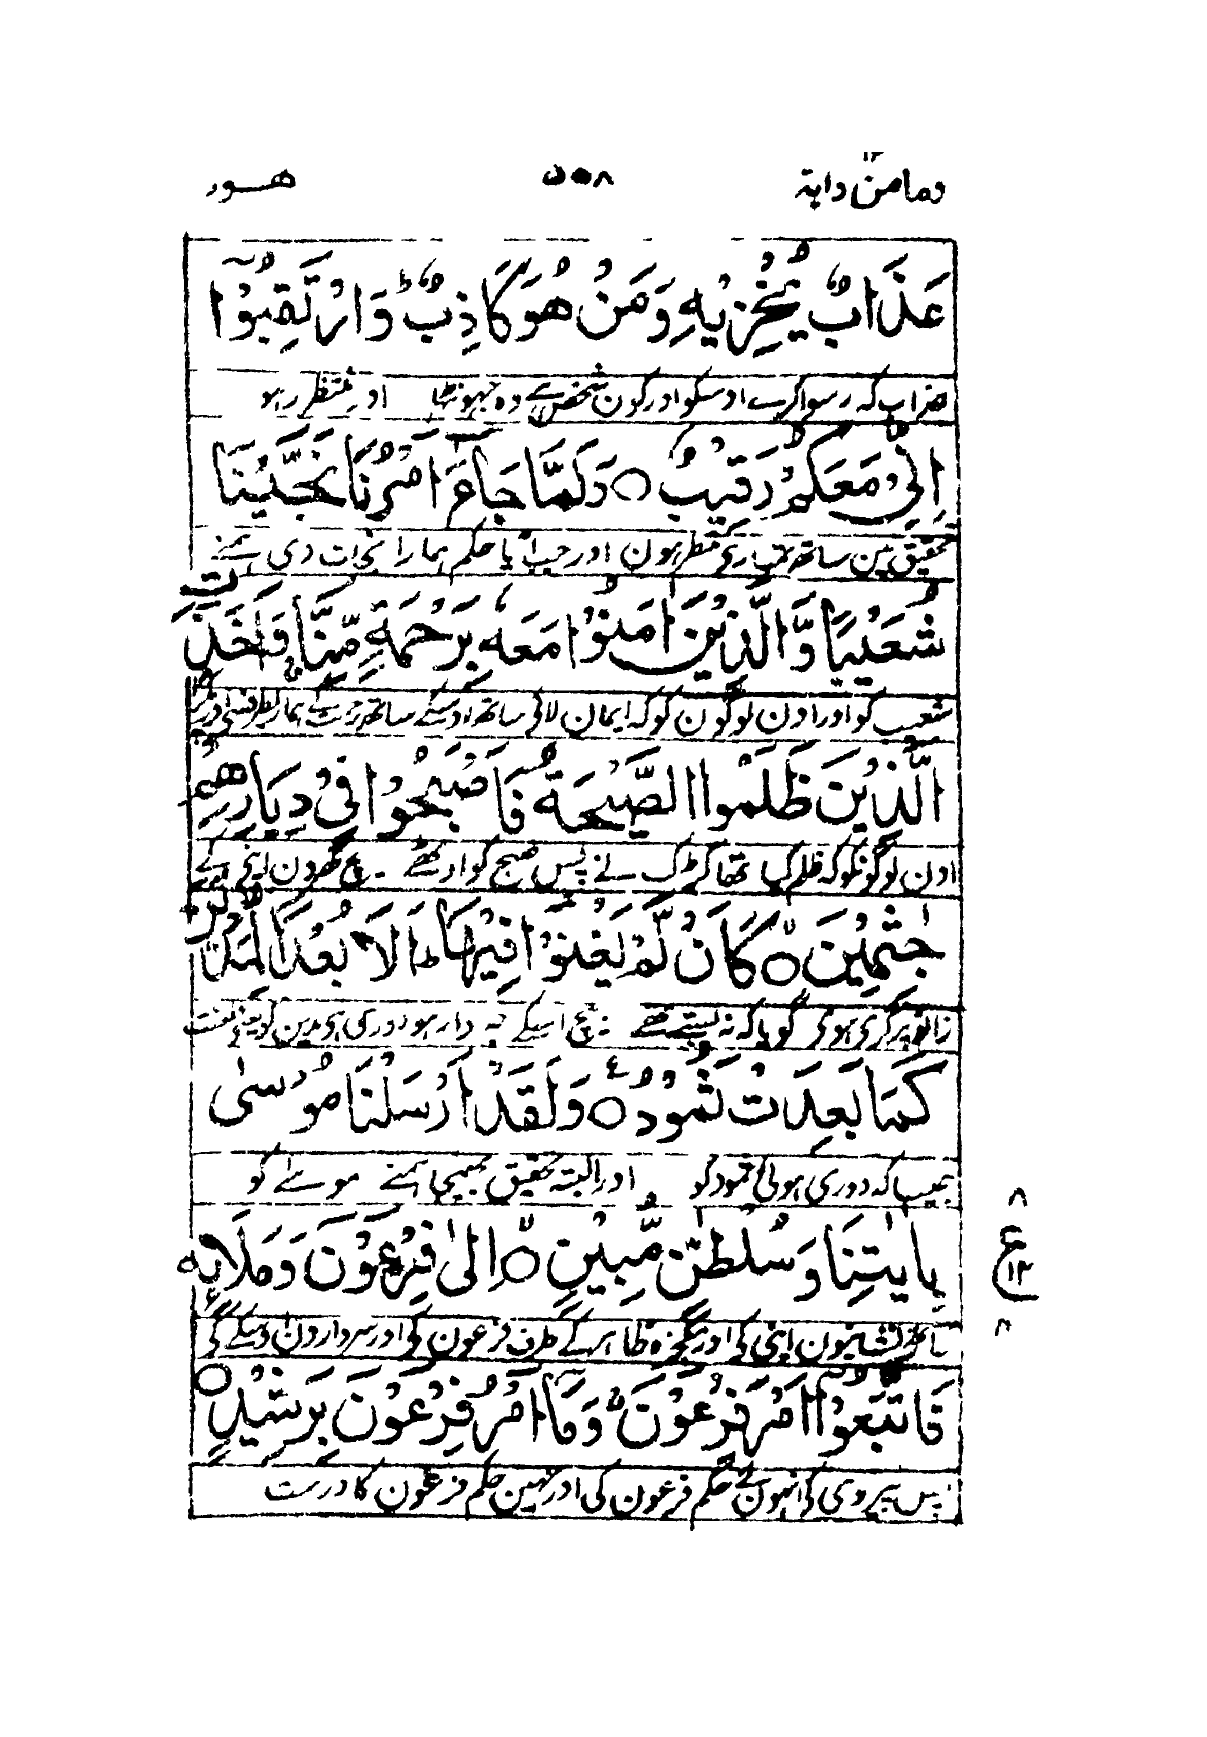 ومامن دابۃ ١٢
٥٠٨
ھود
عَذَابٌ يُّخْزِيْهِ وَمَنْ هُوَ كَاذِبٌ ؕ وَارْتَقِبُوْۤا
عذاب کہ رسوا کرے اوسکو اور کون شخص ہے وہ جہوٹھا اور منتظر رہو
اِنِّىْ مَعَكُمْ رَقِيْبٌ ۝ وَلَمَّا جَآءَ اَمْرُنَا نَجَّيْنَا
تحقیق مین ساتھ تمہارے منتظر ہون اور جب آیا حکم ہمارا نجات دی ہمنے
شُعَيْبًا وَّالَّذِيْنَ اٰمَنُوْا مَعَهٗ بِرَحْمَةٍ مِّنَّا ۚ وَاَخَذَتِ
شعیب کو اور اون لوگون کو کہ ایمان لائے ساتھ اوسکے ساتھ رحمت کے ہماری طرف سے اور پکڑا
الَّذِيْنَ ظَلَمُوا الصَّيْحَةُ فَاَصْبَحُوْا فِىْ دِيَارِهِمْ
اون لوگونکو کہ ظلم کیا تھا کڑک نے پس صبح کو اوٹھے بیچ گھرون اپنے کے
جٰثِمِيْنَ ۝ كَاَنْ لَّمْ يَغْنَوْا فِيْهَا ؕ اَلَا بُعْدًا لِّمَدْيَنَ
زانو پر گری ہوئے گویا کہ نہ بستے تھے بیچ اسکے خبردار ہو دوری ہی مدین کو یعنے لعنت
كَمَا بَعِدَتْ ثَمُوْدُ ۝ ع وَلَقَدْ اَرْسَلْنَا مُوْسٰى
جیسا کہ دوری ہوئی ثمود کو اور البتہ تحقیق بہیجا ہمنے موسےٰ کو
بِاٰيٰتِنَا وَسُلْطٰنٍ مُّبِيْنٍ ۝ اِلٰى فِرْعَوْنَ وَمَلَا۟ئِهٖ
٨
ع
١٢
٨
ساتھ نشانیون اپنی کی اور معجزہ ظاہر کے طرف فرعون کی اور سردارون اوسکے کی
فَاتَّبَعُوْۤا اَمْرَ فِرْعَوْنَ ۚ وَمَاۤ اَمْرُ فِرْعَوْنَ بِرَشِيْدٍ ۝
پس پیروی کی انہون نے حکم فرعون کی اور نہین حکم فرعون کا درست